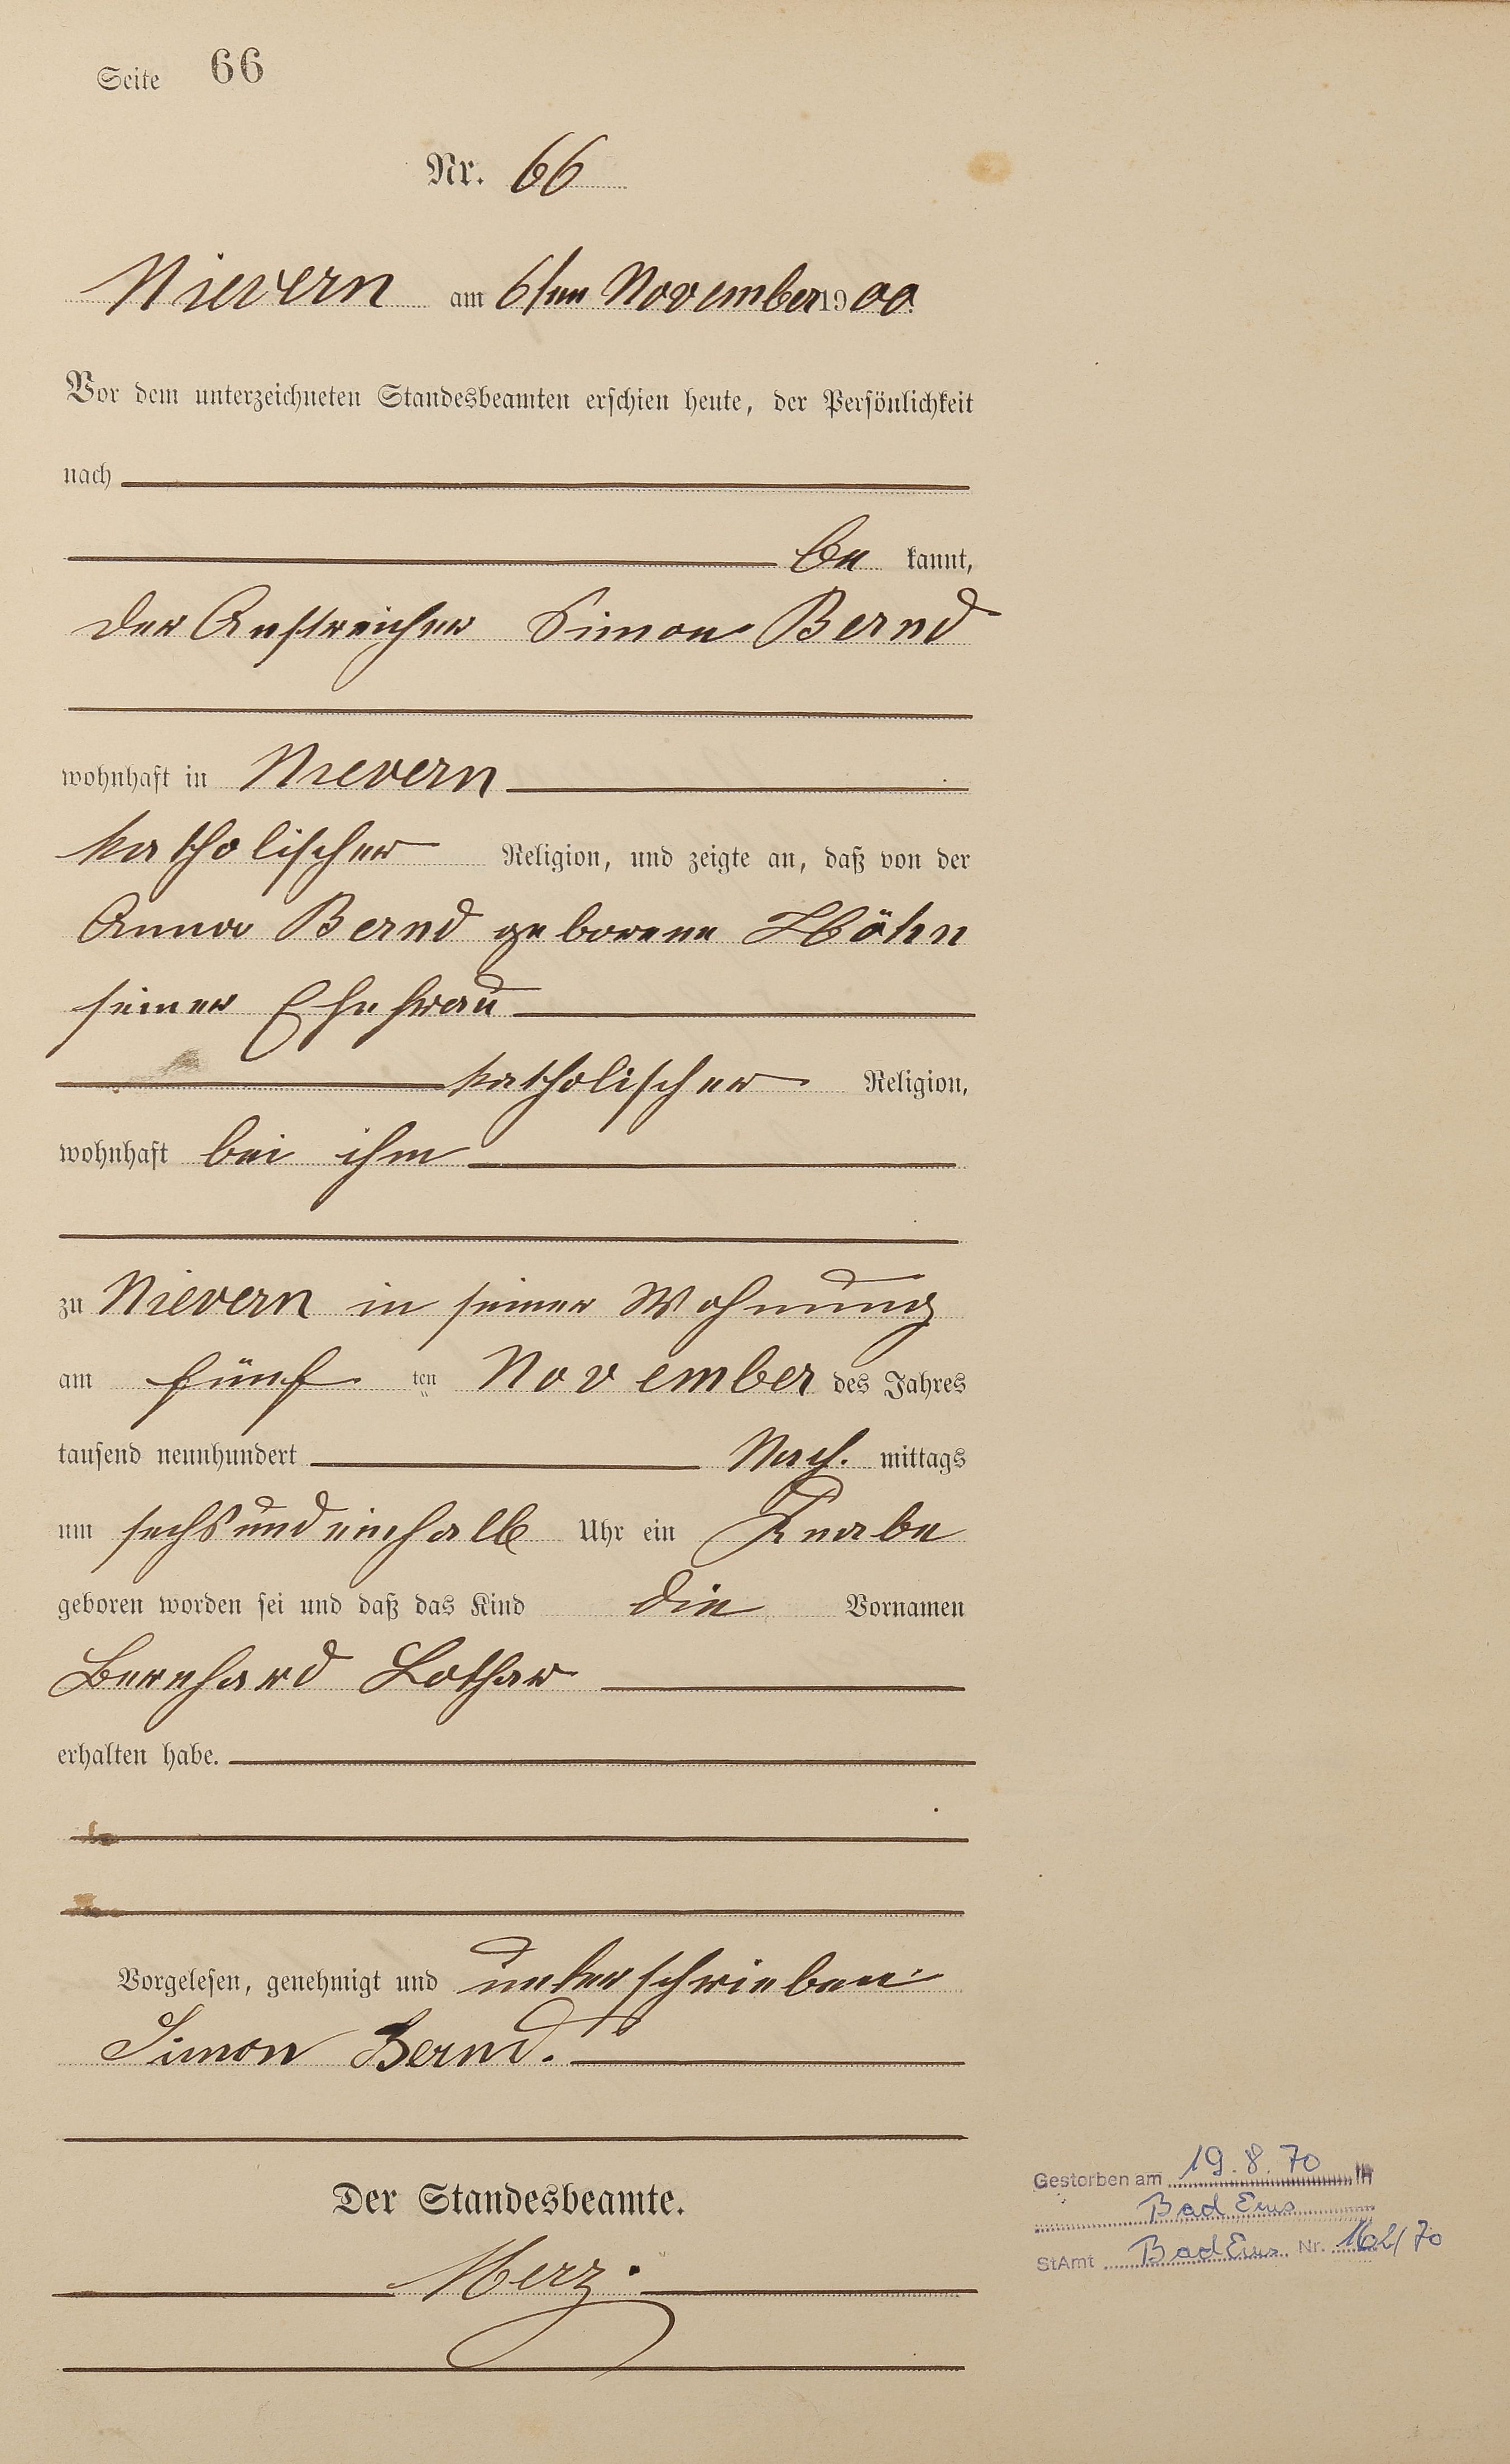 Seite 66
Nr. 66
Nievern am 6ten November 1900.
Vor dem unterzeichneten Standesbeamten erschien heute, der Persönlichkeit
nach
be kannt,
der Anstreicher Simon Bernd
wohnhaft in Nievern
katholischer Religion, und zeigte an, daß von der
Anna Bernd geborene Höhn
seiner Ehefrau
katholischer Religion,
wohnhaft bei ihm
zu Nievern in seiner Wohnung
am fünf ten November des Jahres
tausend neunhundert Nach. mittags
um sechs und einhalb Uhr ein Knabe
geboren worden sei und daß das Kind die Vornamen
Bernhard Lothar
erhalten habe.
Vorgelesen, genehmigt und unterschrieben
Simon Bernd.
Der Standesbeamte.
Merz.
Gestorben am 19.8.70
Bad Ems
StAmt Bad Ems Nr. 162/70